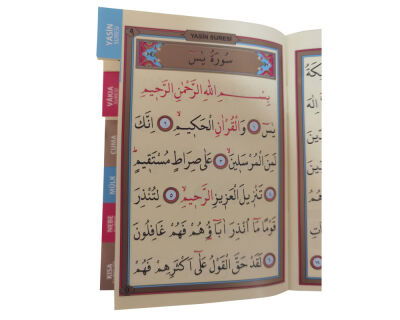 YASİN SURESİ
سُورَةُ يٰسٓ
بِسْمِ اللّٰهِ الرَّحْمٰنِ الرَّحٖيمِ
يٰسٓ ﴿١﴾ وَالْقُرْاٰنِ الْحَكٖيمِ ﴿٢﴾ اِنَّكَ
لَمِنَ الْمُرْسَلٖينَ ﴿٣﴾ عَلٰى صِرَاطٍ مُسْتَقٖيمٍ
﴿٤﴾ تَنْزٖيلَ الْعَزٖيزِ الرَّحٖيمِ ﴿٥﴾ لِتُنْذِرَ
قَوْمًا مَٓا اُنْذِرَ اٰبَٓاؤُهُمْ فَهُمْ غَافِلُونَ
﴿٦﴾ لَقَدْ حَقَّ الْقَوْلُ عَلٰٓى اَكْثَرِهِمْ فَهُمْ
YASİN
SURESİ
VAKIA
CUMA
MÜLK
NEBE
KISA